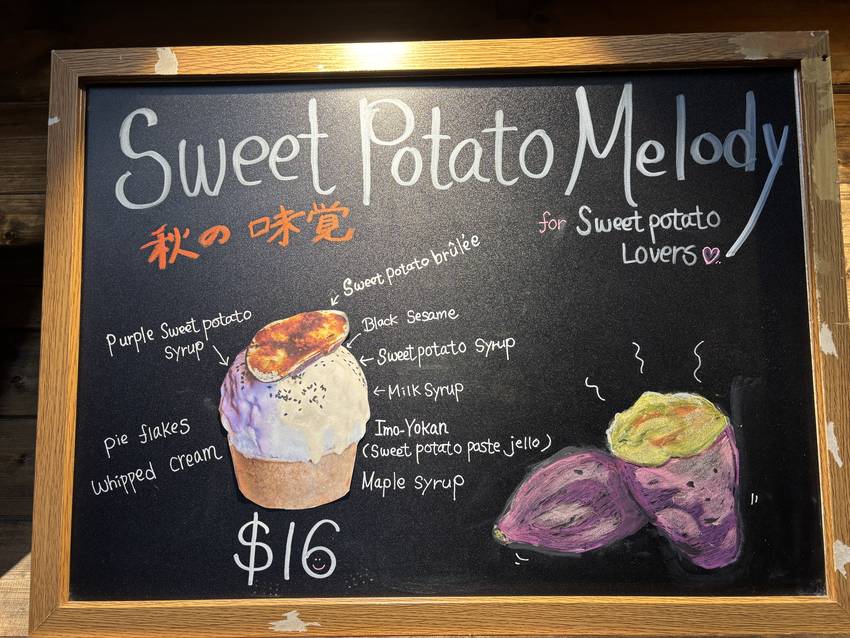 Sweet Potato Melody
秋の味覚
for Sweet potato
Lovers
Sweet potato brûlée
Purple Sweet potato
Syrup
Black Sesame
Sweet potato Syrup
Milk Syrup
pie flakes
Whipped Cream
Imo-Yokan
(Sweet potato paste jello)
Maple Syrup
$16